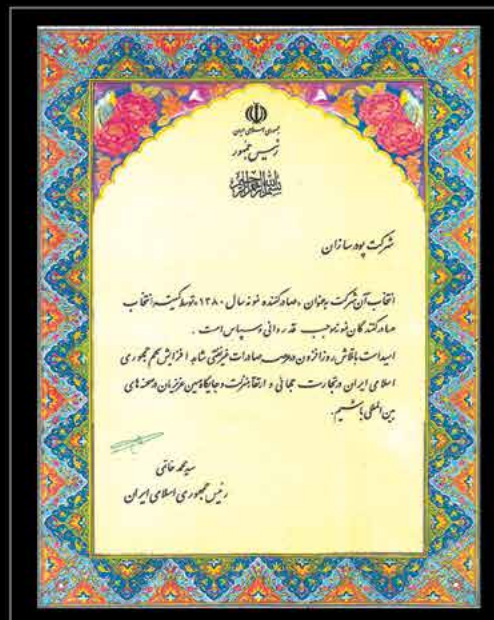 جمهوری اسلامی ایران
رئیس جمهور
بسم الله الرحمن الرحیم
شرکت پودرسازان
انتخاب آن شرکت بعنوان «صادرکننده نمونه سال ۱۳۸۰» توسط کمیته انتخاب
صادرکنندگان نمونه موجب قدردانی و سپاس است .
امید است با تلاش روزافزون در عرصه صادرات غیرنفتی شاهد افزایش سهم جمهوری
اسلامی ایران در تجارت جهانی و ارتقاء منزلت و جایگاه میهن عزیزمان در صحنه های
بین المللی باشیم .
سید محمد خاتمی
رئیس جمهوری اسلامی ایران